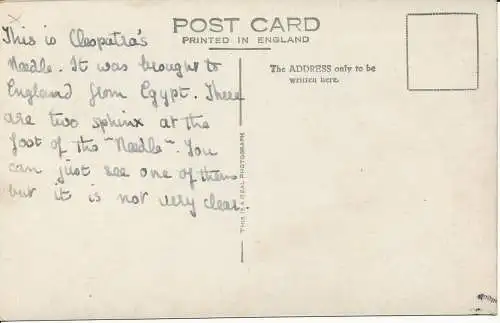 POST CARD
PRINTED IN ENGLAND
This is Cleopatra's
Needle. It was brought to
England from Egypt. There
are two sphinx at the
foot of the "Needle". You
can just see one of them
but it is not very clear.
The ADDRESS only to be
written here.
THIS IS A REAL PHOTOGRAPH